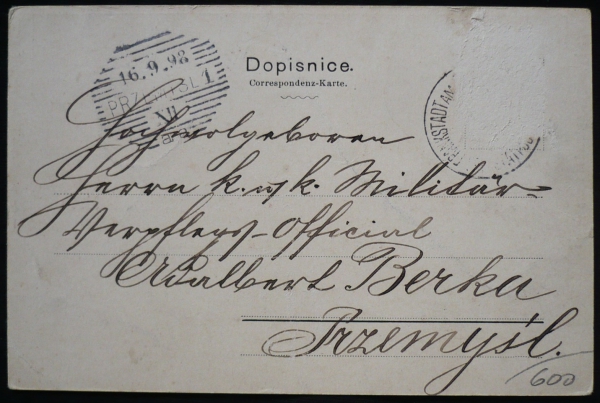 Dopisnice.
Correspondenz-Karte.
16.9.98
PRZEMYŚL 1
XI
Hochwolgeboren
Herrn k. u. k. Militär-
Verpflegs-Official
Adalbert Berka
Przemyśl.
600